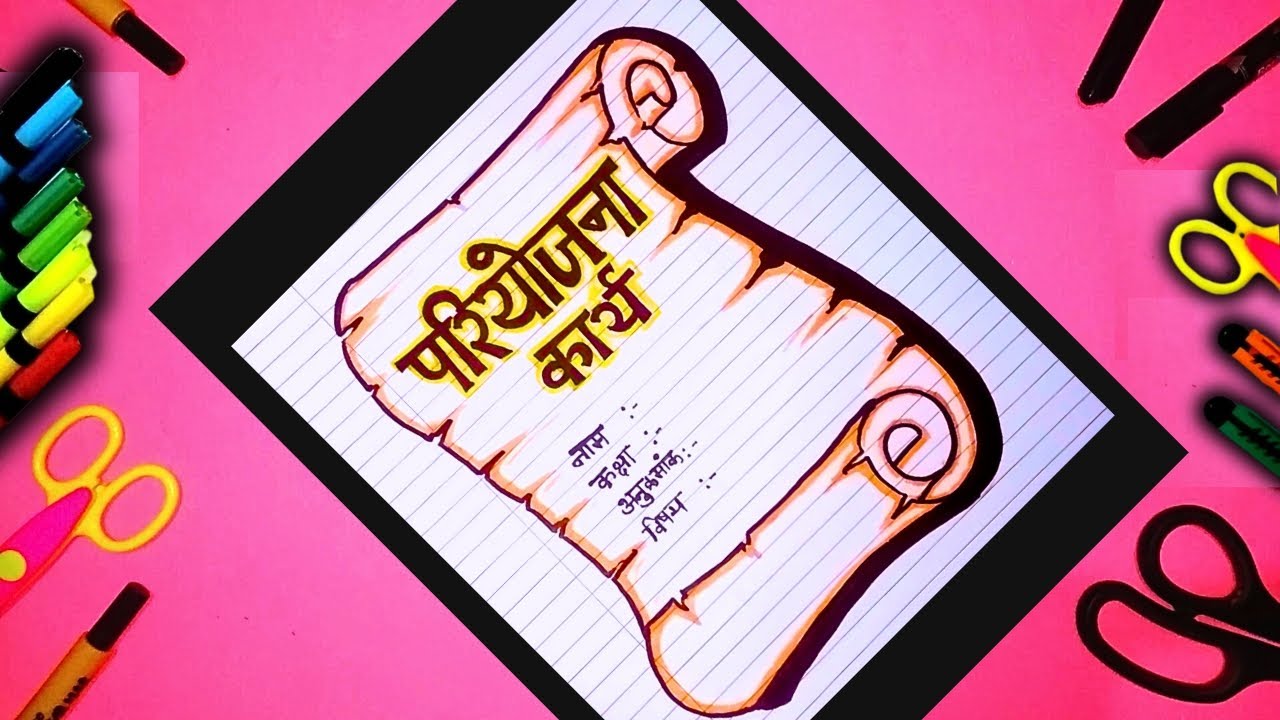 परियोजना
कार्य
नाम :-
कक्षा :-
अनुक्रमांक :-
विषय :-